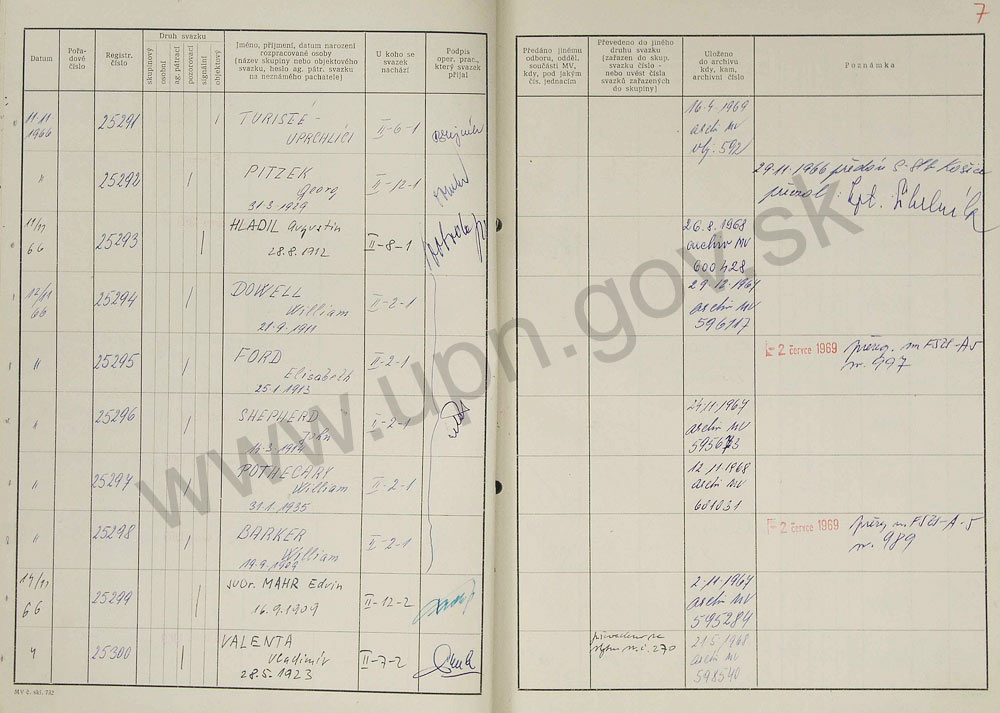 7
Datum
Pořa-
dové
číslo
Registr.
číslo
Druh svazku
skupinový
osobní
ag. pátrací
pozorovací
signální
objektový
Jméno, příjmení, datum narození
rozpracované osoby
(název skupiny nebo objektového
svazku, heslo ag. pátr. svazku
na neznámého pachatele)
U koho se
svazek
nachází
Podpis
oper. prac.,
který svazek
přijal
Předáno jinému
odboru, odděl.
součásti MV,
kdy, pod jakým
čís. jednacím
Převedeno do jiného
druhu svazku
(zařazen do skup.
svazku číslo -
nebo uvést čísla
svazků zařazených
do skupiny)
Uloženo
do archivu
kdy, kam,
archivní číslo
Poznámka
11.11.
1966
25291
TURISTÉ -
UPRCHLÍCI
II-6-1
16.4.1969
archiv MV
obj. 592
"
25292
PITZEK
Georg
31.3.1929
II-12-1
29.11.1966 předán S-StB Košice
převzal:
11/11
66
25293
HLADIL Augustin
28.8.1912
II-8-1
26.8.1968
archiv MV
600428
12/11
66
25294
DOWELL
William
21.9.1911
II-2-1
29.12.1967
archiv MV
596117
"
25295
FORD
Elisabeth
25.1.1913
II-2-1
- 2. července 1969
přereg.
"
25296
SHEPHERD
John
14.3.1914
II-2-1
archiv MV
"
25297
POTHECARY
William
31.1.1935
II-2-1
12.11.1968
archiv MV
601031
"
25298
BARKER
William
19.9.1909
II-2-1
- 2. července 1969
přereg.
14/11
66
25299
JUDr. MAHR Edvin
16.9.1909
II-12-2
2.11.1967
archiv MV
595284
"
25300
VALENTA
Vladimír
28.5.1923
II-7-2
21.5.1968
archiv MV
598540
MV č. skl. 732
www.upn.gov.sk